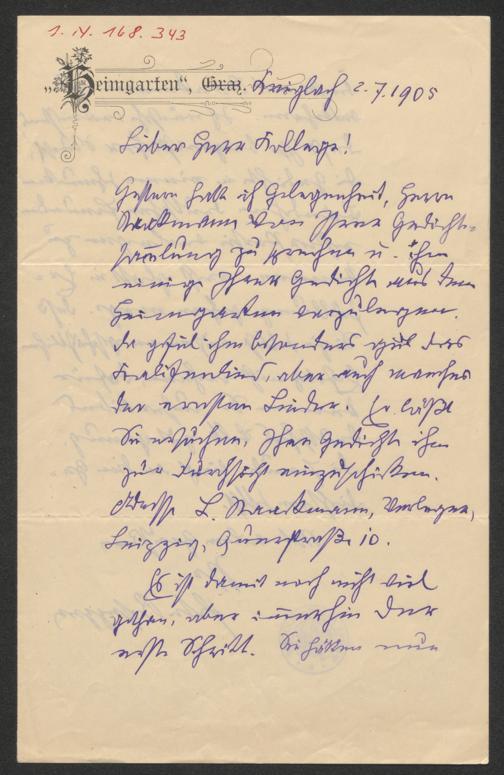 1. IV. 168. 343
„Heimgarten“, Graz. Krieglach 2.7.1905
Lieber Herr Kollege!
Gestern hatte ich Gelegenheit, Herrn
Staackmann von Ihrer Gedicht-
sammlung zu sprechen u. ihm
einige Ihrer Gedichte aus dem
Heimgarten vorzulegen.
Da gefiel ihm besonders gut das
aber auch manches
der ernsten Lieder. Er läßt
Sie ersuchen, Ihre Gedichte ihm
zur Durchsicht einzuschicken.
Adresse L. Staackmann, Verleger,
Leipzig, Querstraße 10.
Es ist damit noch nicht viel
gethan, aber immerhin der
erste Schritt. Sie hätten nun